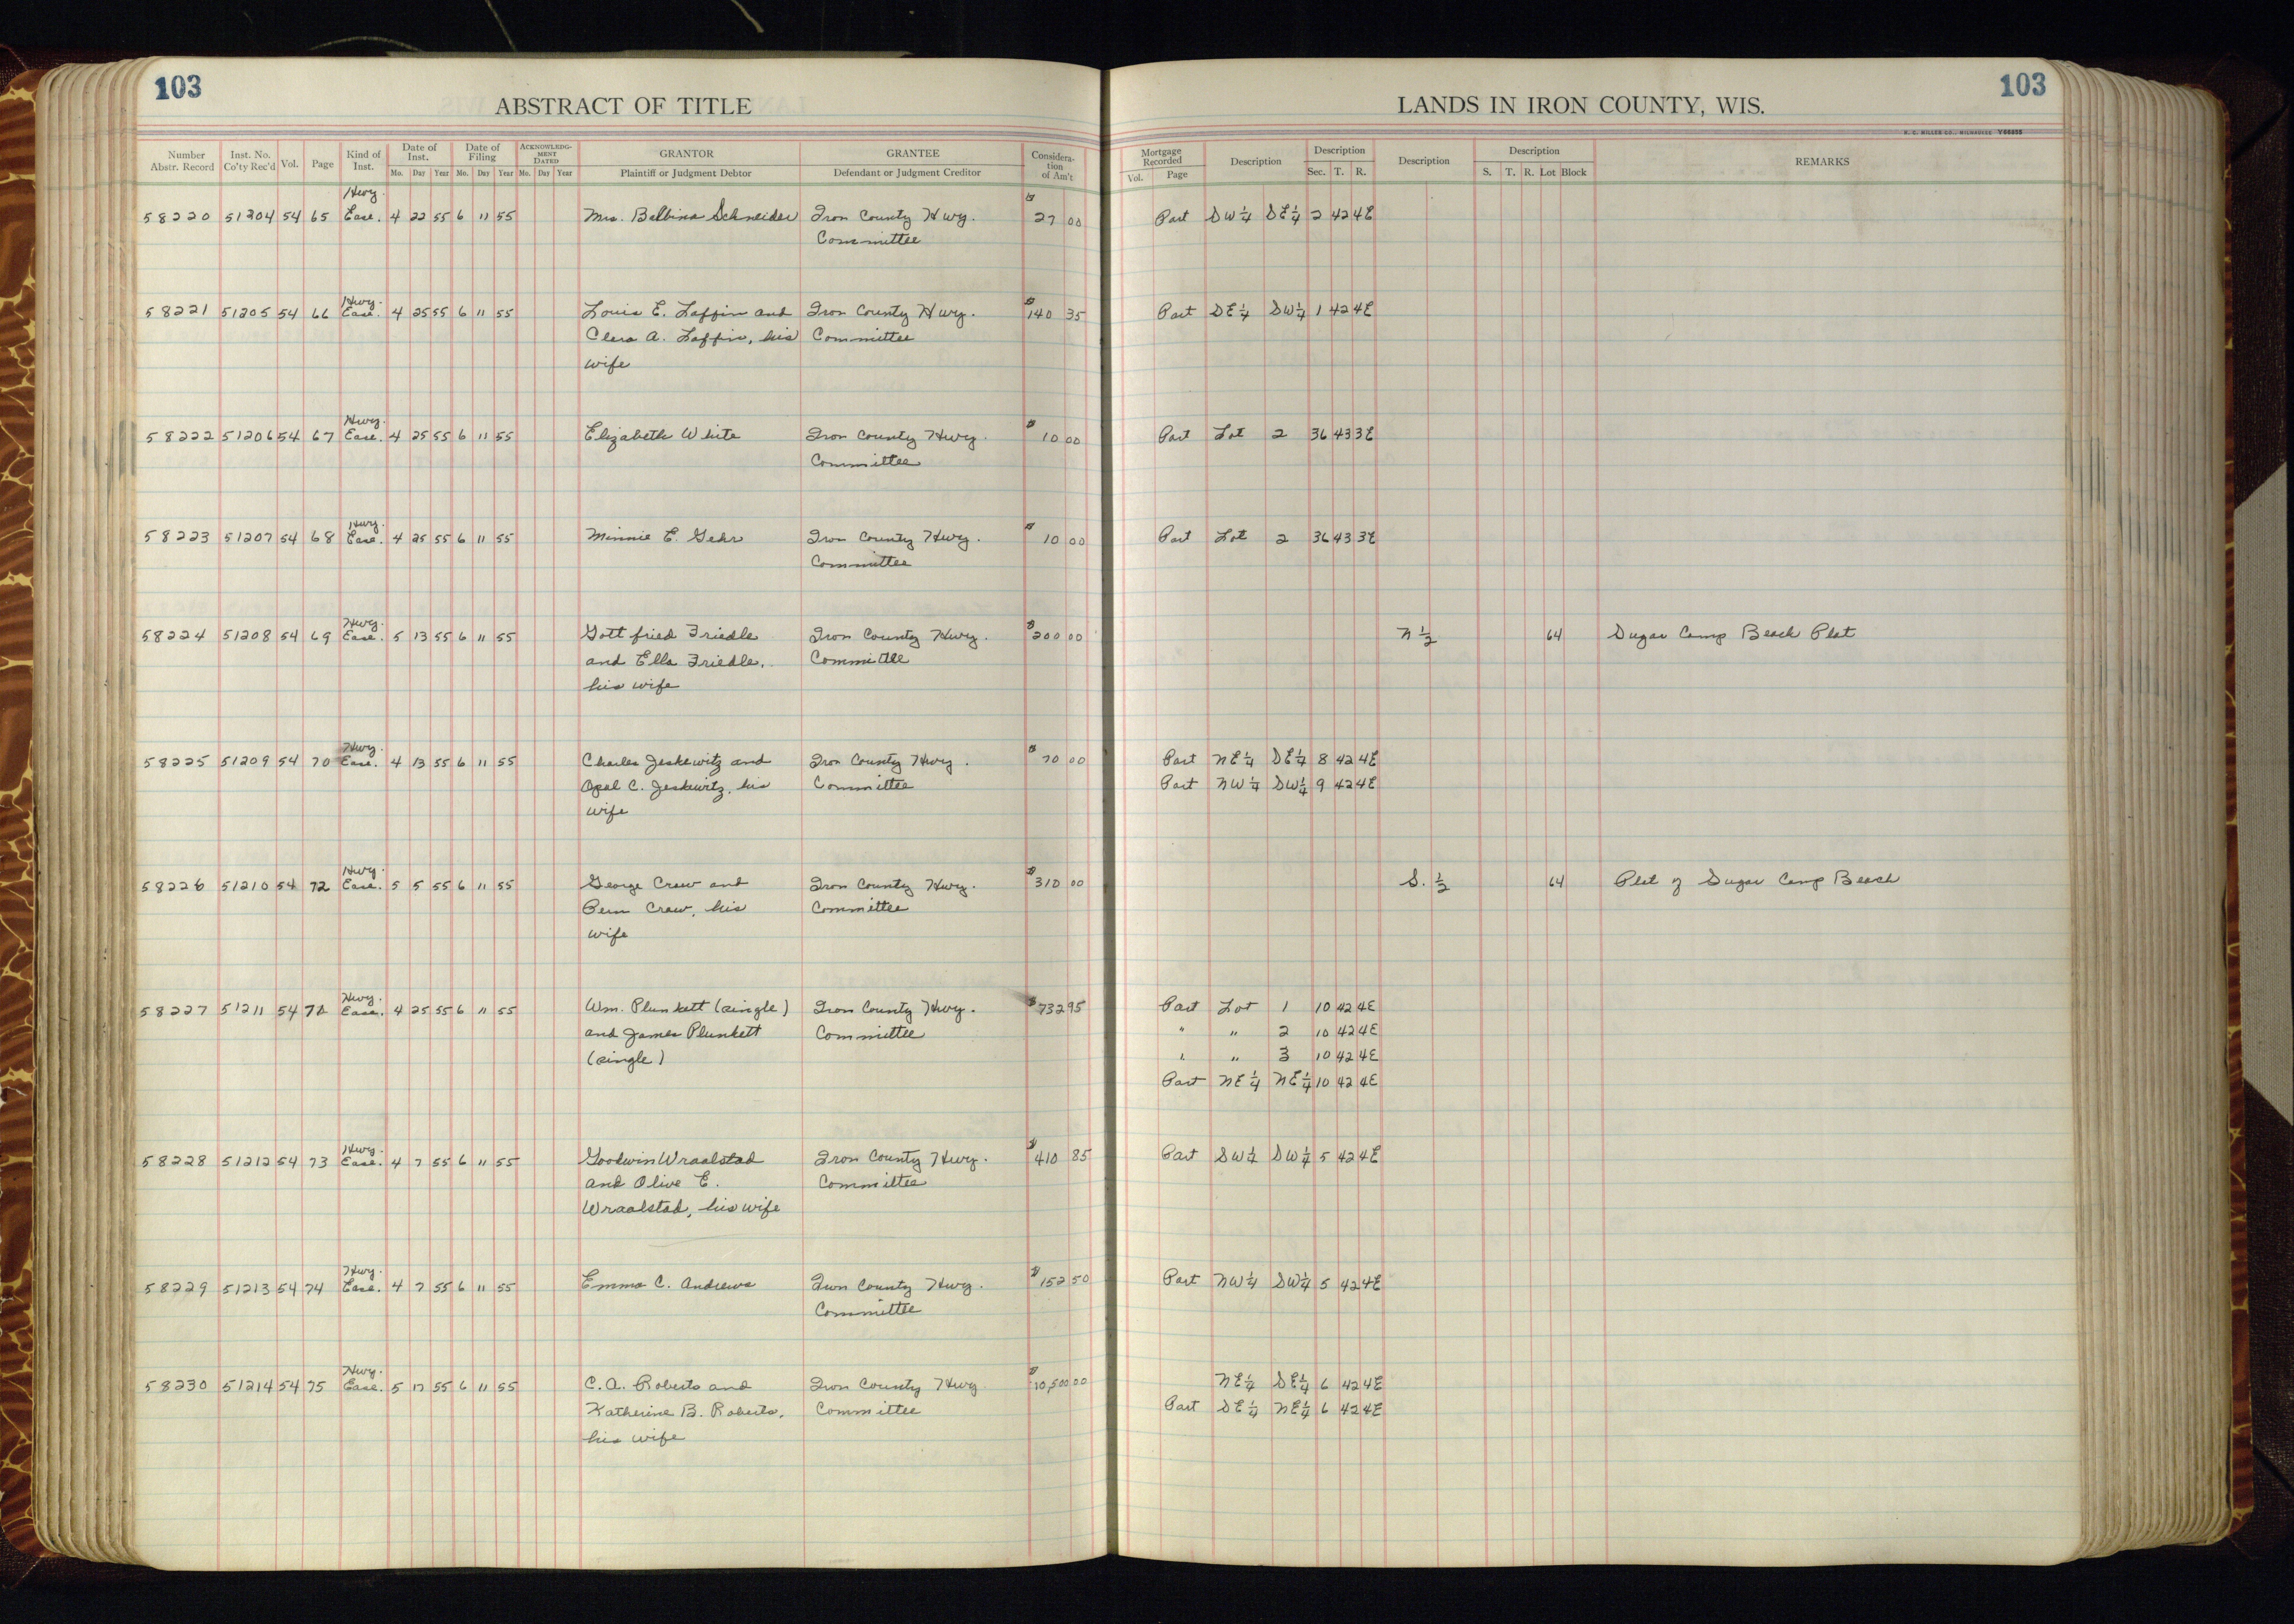 103
103
ABSTRACT OF TITLE
LANDS IN IRON COUNTY, WIS.
H. C. MILLER CO., MILWAUKEE Y56935
Number Abstr. Record Inst. No. Co'ty Rec'd Vol. Page Kind of Inst. Date of Inst. Mo. Day Year Date of Filing Mo. Day Year ACKNOWLEDG-MENT DATED Mo. Day Year GRANTOR Plaintiff or Judgment Debtor GRANTEE Defendant or Judgment Creditor Considera-tion of Am't
Mortgage Recorded Vol. Page Description Description Sec. T. R. Description Description S. T. R. Lot Block REMARKS
Hwy.
58220 51204 54 65 Ease. 4 22 55 6 11 55 Mrs. Balbina Schneider Iron County Hwy. $27 00 Part SW 1/4 SE 1/4 2 42 4E
Committee
Hwy.
58221 51205 54 66 Ease. 4 25 55 6 11 55 Louis E. Laffin and Iron County Hwy. $140 35 Part SE 1/4 SW 1/4 1 42 4E
Clera A. Laffin, his Committee
wife
Hwy.
58222 51206 54 67 Ease. 4 25 55 6 11 55 Elizabeth White Iron County Hwy. $10 00 Part Lot 2 36 43 3E
Committee
Hwy.
58223 51207 54 68 Ease. 4 25 55 6 11 55 Minnie E. Gehr Iron County Hwy. $10 00 Part Lot 2 36 43 3E
Committee
Hwy.
58224 51208 54 69 Ease. 5 13 55 6 11 55 Gottfried Friedle Iron County Hwy. $200 00 N 1/2 64 Sugar Camp Beach Plat
and Ella Friedle, Committee
his wife
Hwy.
58225 51209 54 70 Ease. 4 13 55 6 11 55 Charles Jeskewitz and Iron County Hwy. $70 00 Part NE 1/4 SE 1/4 8 42 4E
Opal C. Jeskewitz, his Committee Part NW 1/4 SW 1/4 9 42 4E
wife
Hwy.
58226 51210 54 72 Ease. 5 5 55 6 11 55 George Craw and Iron County Hwy. $310 00 S. 1/2 64 Plat of Sugar Camp Beach
Craw, his Committee
wife
Hwy.
58227 51211 54 Ease. 4 25 55 6 11 55 Wm. Plunkett (single) Iron County Hwy. $732 95 Part Lot 1 10 42 4E
and James Plunkett Committee " " 2 10 42 4E
(single) " " 3 10 42 4E
Part NE 1/4 NE 1/4 10 42 4E
Hwy.
58228 51212 54 73 Ease. 4 7 55 6 11 55 Goodwin Wraalstad Iron County Hwy. $410 85 Part SW 1/4 SW 1/4 5 42 4E
and Olive E. Committee
Wraalstad, his wife
Hwy.
58229 51213 54 74 Ease. 4 7 55 6 11 55 Emma C. Andrews Iron County Hwy. $152 50 Part NW 1/4 SW 1/4 5 42 4E
Committee
Hwy.
58230 51214 54 75 Ease. 5 17 55 6 11 55 C. A. Roberts and Iron County Hwy $10,500 00 NE 1/4 SE 1/4 6 42 4E
Katherine B. Roberts, Committee Part SE 1/4 NE 1/4 6 42 4E
his wife